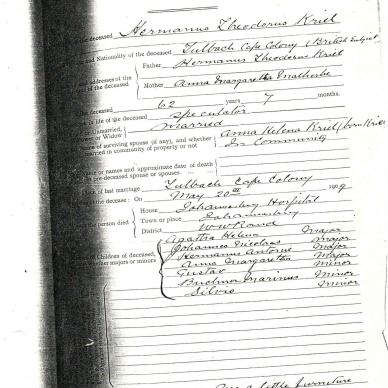 deceased Hermanus Theodorus Kriel
and Nationality of the deceased Tulbach Cape Colony (British Subject
Father Hermanus Theodorus Kriel
addresses of the
of the deceased
Mother Anna Margaretha Malherbe
deceased 62 years 7 months.
in life of the deceased speculator
Unmarried, married
or Widow)
of surviving spouse (if any), and whether Anna Helena Kriel (born Kriel
married in community of property or not In Community
or names and approximate date of death
pre-deceased spouse or spouses
of last marriage Tulbach Cape Colony
the decease : On May 20th 1919
House Johannesburg Hospital
person died Town or place Johannesburg
District WW Rand
Children of deceased,
whether majors or minors
Agatha Helena Major
Johannes Nicolaas Major
Hermanus Antonie Major
Anna Margaretha Major
Gustav Minor
Marinus Minor
Silvio Minor
a little furniture